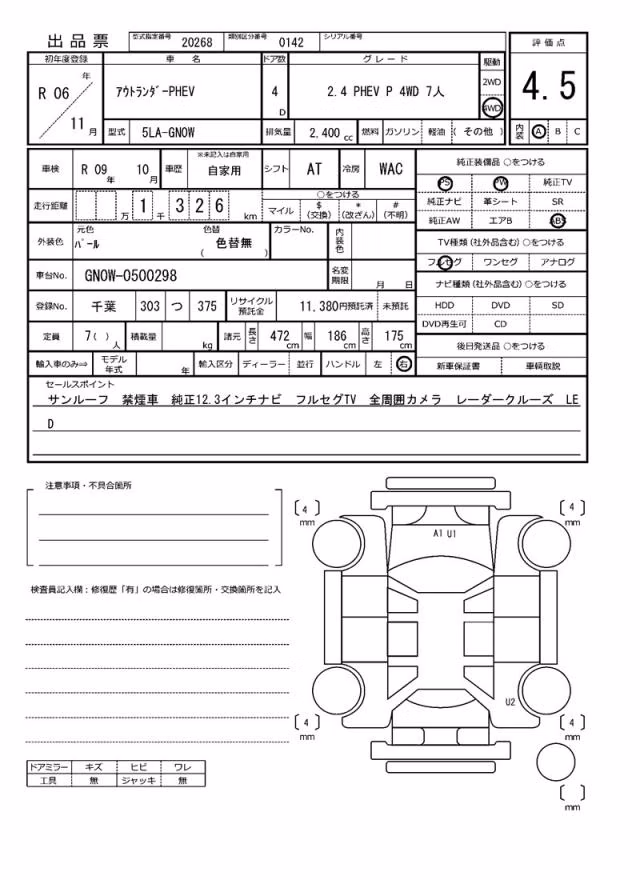 出品票 型式指定番号 20268 類別区分番号 0142 シリアル番号
評価点
4.5
内装 A B C
初年度登録 車名 ドア数 グレード 駆動
R 06 年 11 月
アウトランダ-PHEV 4 D 2.4 PHEV P 4WD 7人 2WD 4WD
型式 5LA-GN0W 排気量 2,400 cc 燃料 ガソリン 軽油 ( その他 )
車検 R 09 年 10 月 車歴 ※未記入は自家用 自家用 シフト AT 冷房 WAC
走行距離 万 1 千 3 2 6 km ○をつける
マイル $ (交換) * (改ざん) # (不明)
外装色 元色 パール 色替 色替無 ( ) カラーNo. 内装色
車台No. GN0W-0500298 名変期限 月 日
登録No. 千葉 303 つ 375 リサイクル預託金 11,380円預託済 未預託
定員 7( ) 人 積載量 kg 諸元 長さ 472 cm 幅 186 cm 高さ 175 cm
輸入車のみ⇒ モデル年式 年 輸入区分 ディーラー 並行 ハンドル 左 右
純正装備品 ○をつける
PS PW 純正TV
純正ナビ 革シート SR
純正AW エアB ABS
TV種類 (社外品含む) ○をつける
フルセグ ワンセグ アナログ
ナビ種類 (社外品含む) ○をつける
HDD DVD SD
DVD再生可 CD
後日発送品 ○をつける
新車保証書 車輌取説
セールスポイント
サンルーフ 禁煙車 純正12.3インチナビ フルセグTV 全周囲カメラ レーダークルーズ LE
D
注意事項・不具合箇所
検査員記入欄：修復歴「有」の場合は修復箇所・交換箇所を記入
ドアミラー キズ ヒビ ワレ
工具 無 ジャッキ 無
4 mm
4 mm
A1 U1
U2
4 mm
4 mm
mm